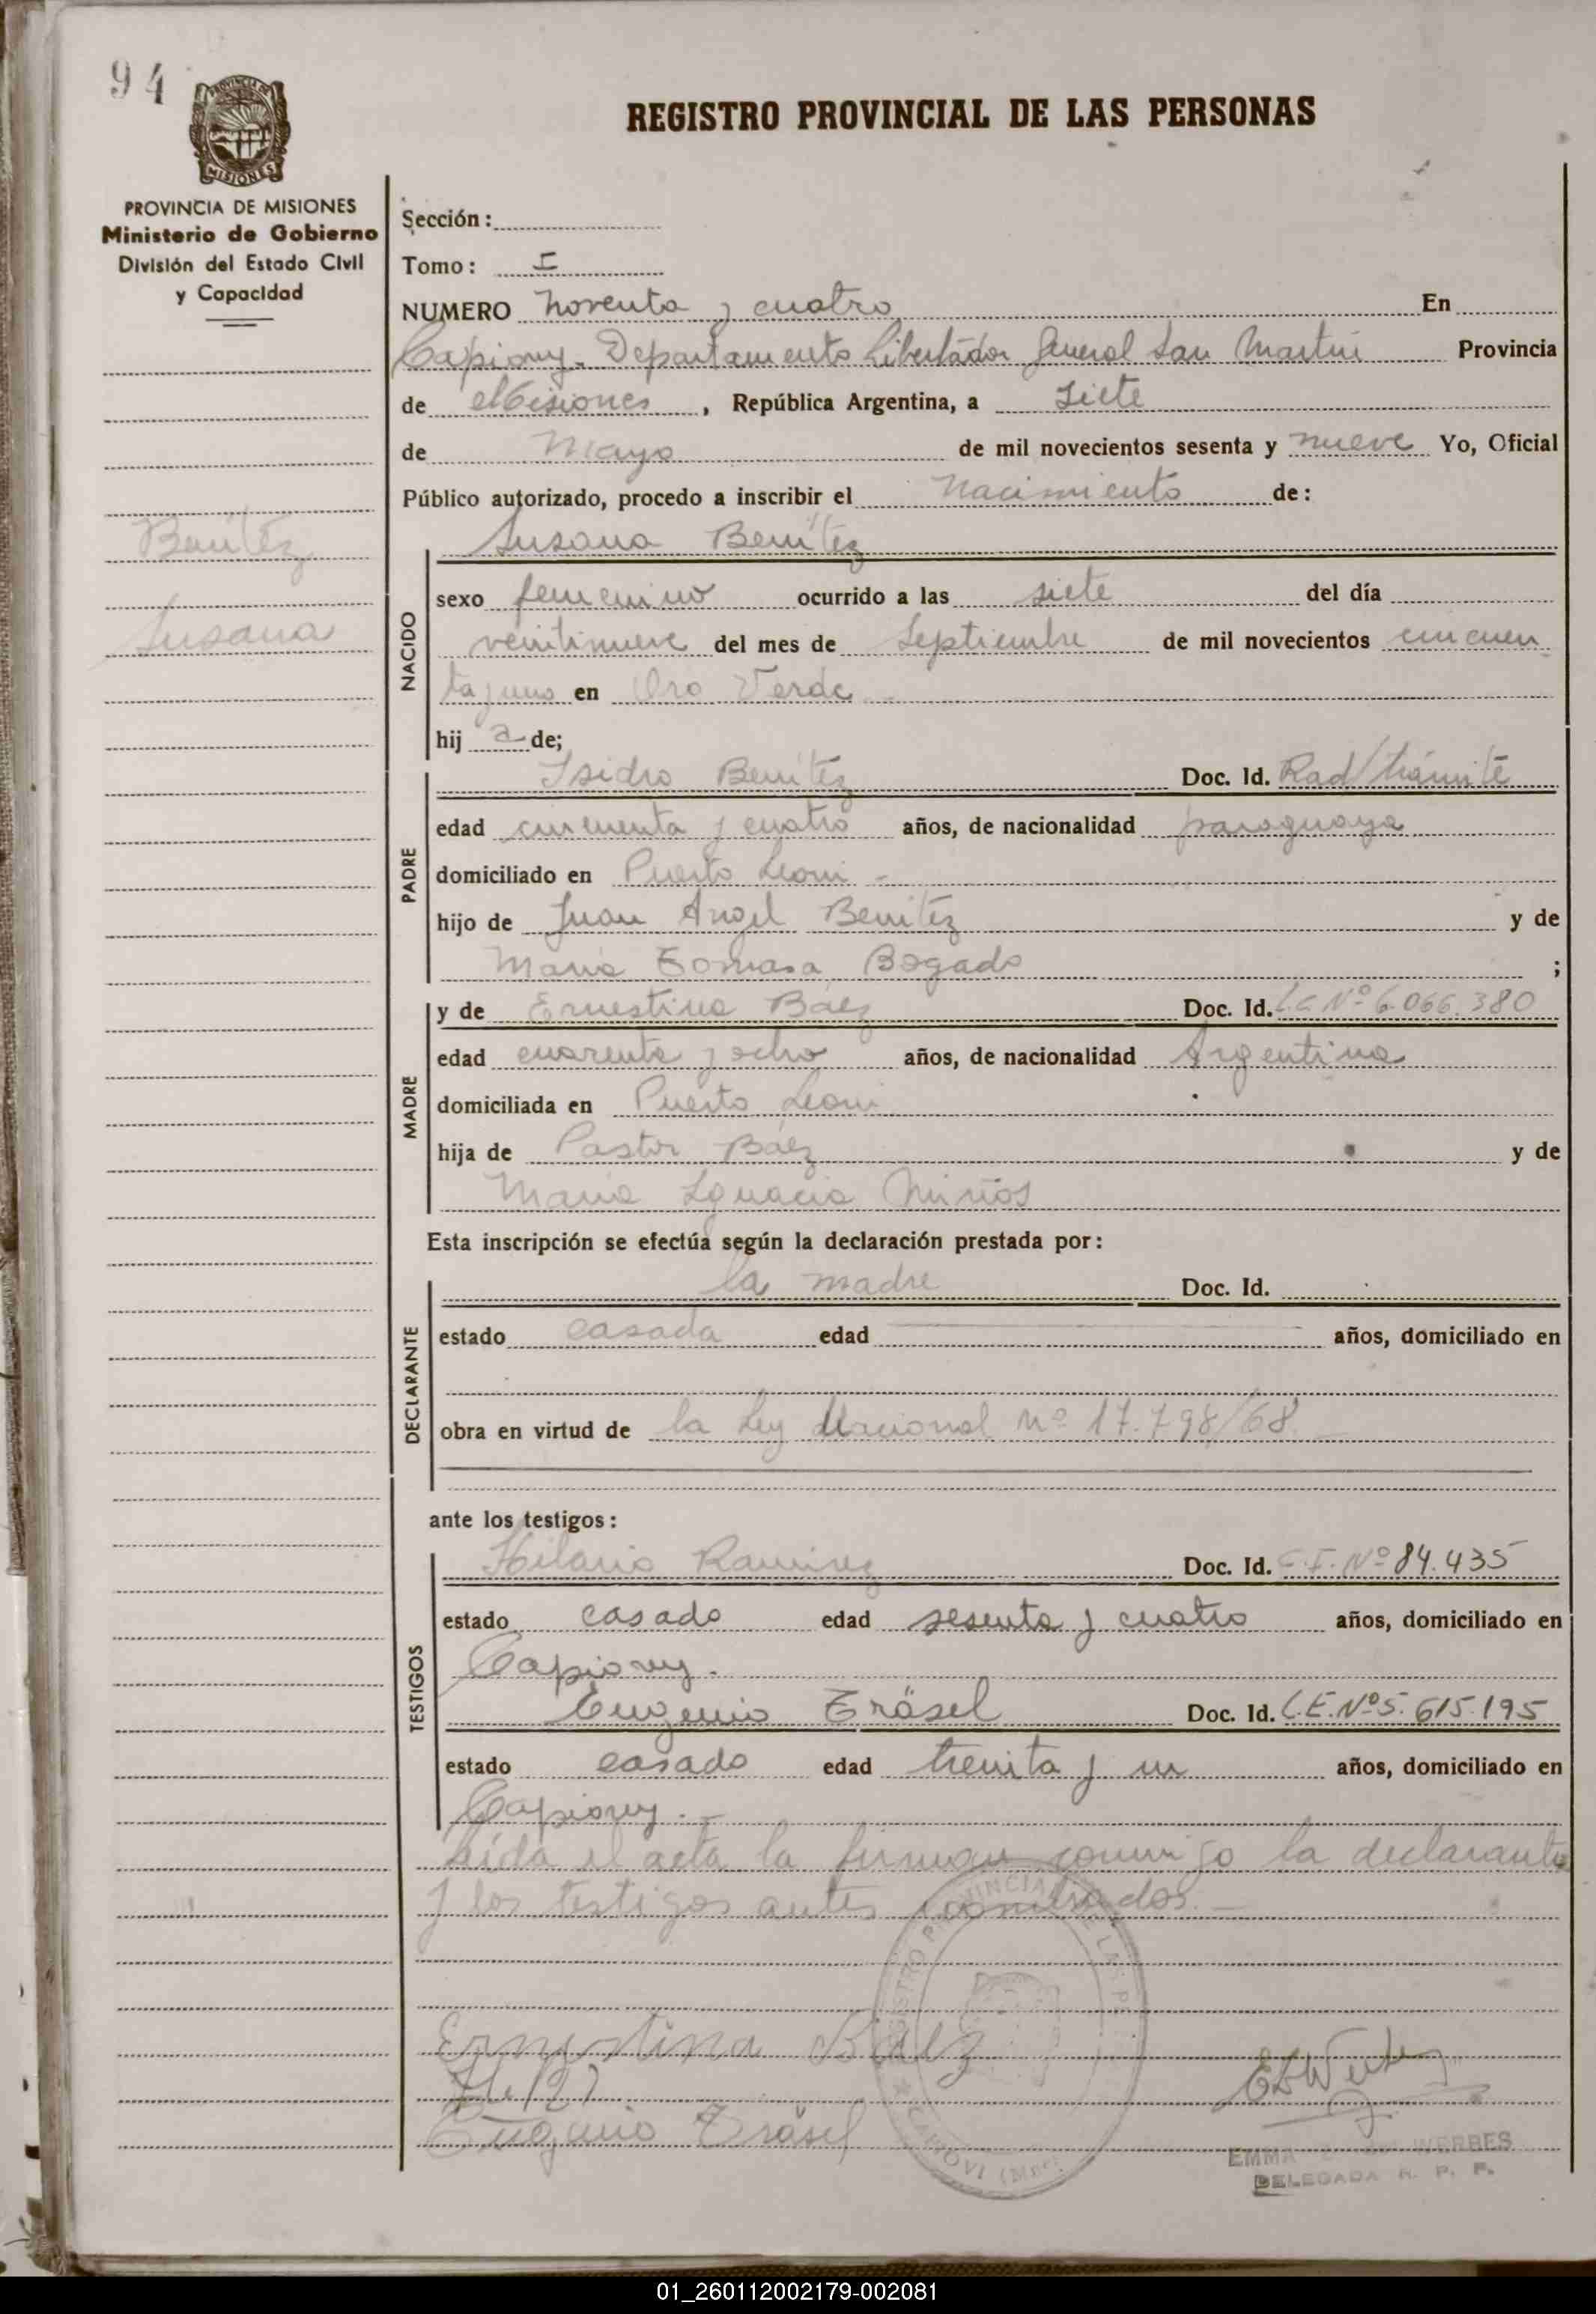 94
PROVINCIA DE
MISIONES
REGISTRO PROVINCIAL DE LAS PERSONAS
PROVINCIA DE MISIONES
Ministerio de Gobierno
División del Estado Civil
y Capacidad
Benítez
Susana
Sección:
Tomo: I
NUMERO Noventa y cuatro En
Capiovy - Departamento Libertador General San Martín Provincia
de Misiones, República Argentina, a Siete
de Mayo de mil novecientos sesenta y nueve Yo, Oficial
Público autorizado, procedo a inscribir el Nacimiento de:
NACIDO
Susana Benítez
sexo femenino ocurrido a las siete del día
veintinueve del mes de Septiembre de mil novecientos cincuen
ta y uno en Oro Verde
hij a de;
PADRE
Isidro Benítez Doc. Id. Rad/trámite
edad cincuenta y cuatro años, de nacionalidad paraguaya
domiciliado en Puerto Leoni -
hijo de Juan Angel Benítez y de
María Tomasa Bogado ;
MADRE
y de Ernestina Báez Doc. Id. L.C Nº 6.066.380
edad cuarenta y ocho años, de nacionalidad Argentina
domiciliada en Puerto Leoni
hija de Pastor Báez y de
María Ignacia
Esta inscripción se efectúa según la declaración prestada por:
DECLARANTE
la madre Doc. Id.
estado casada edad años, domiciliado en
obra en virtud de la Ley Nacional Nº 17.798/68.
ante los testigos:
TESTIGOS
Hilario Ramirez Doc. Id. C.I. Nº 84.435
estado casado edad sesenta y cuatro años, domiciliado en
Capiovy.
Eugenio Träsel Doc. Id. L.E. Nº 5.615.195
estado casado edad treinta y un años, domiciliado en
Capiovy.-
Leída el acta la firman conmigo la declarante
y los testigos antes nombrados.-
REGISTRO PROVINCIAL DE LAS PE
CAPIOVI (Mnes)
Ernestina Báez
Eugenio Träsel
EMMA WERBES
DELEGADA R. P. P.
01_260112002179-002081